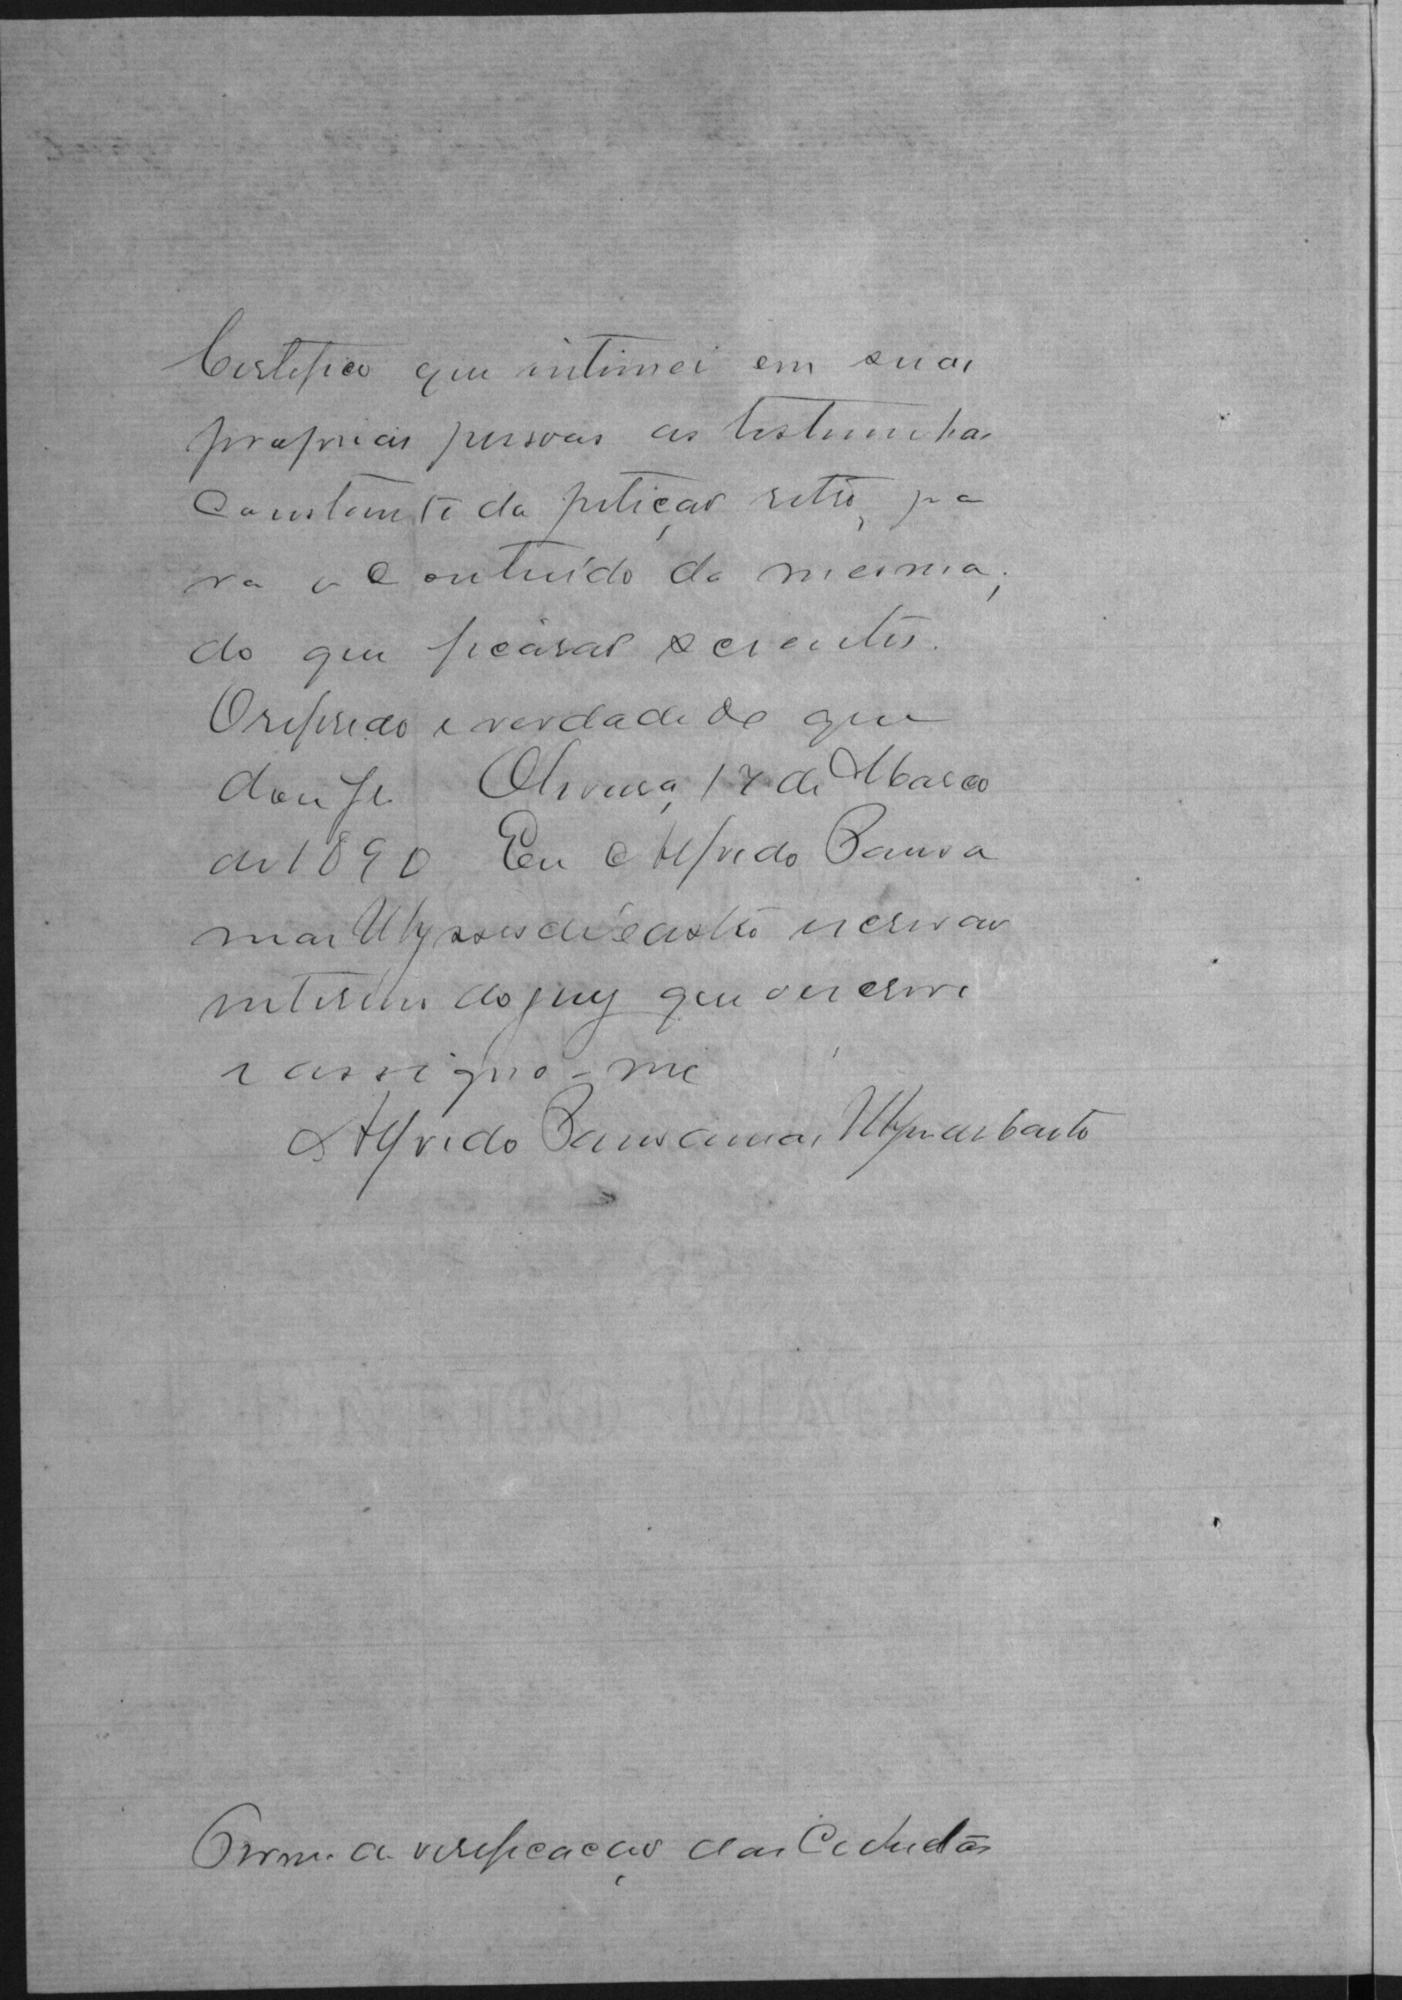 Certifico que intimei em suas
proprias pessoas as testemunhas
constante da petiçao retro, pa
ra o contuido da mesma;
do que ficárao scientes.
O referido e verdade de que
dou fé Olivença, 17 de Março
de 1890 Eu Alfredo
mas Ulysses de Castro escrivao
interino do jury que o escrevi
e assigno-me
Alfredo Ulysses de Castro
verificaçao das Cedulas